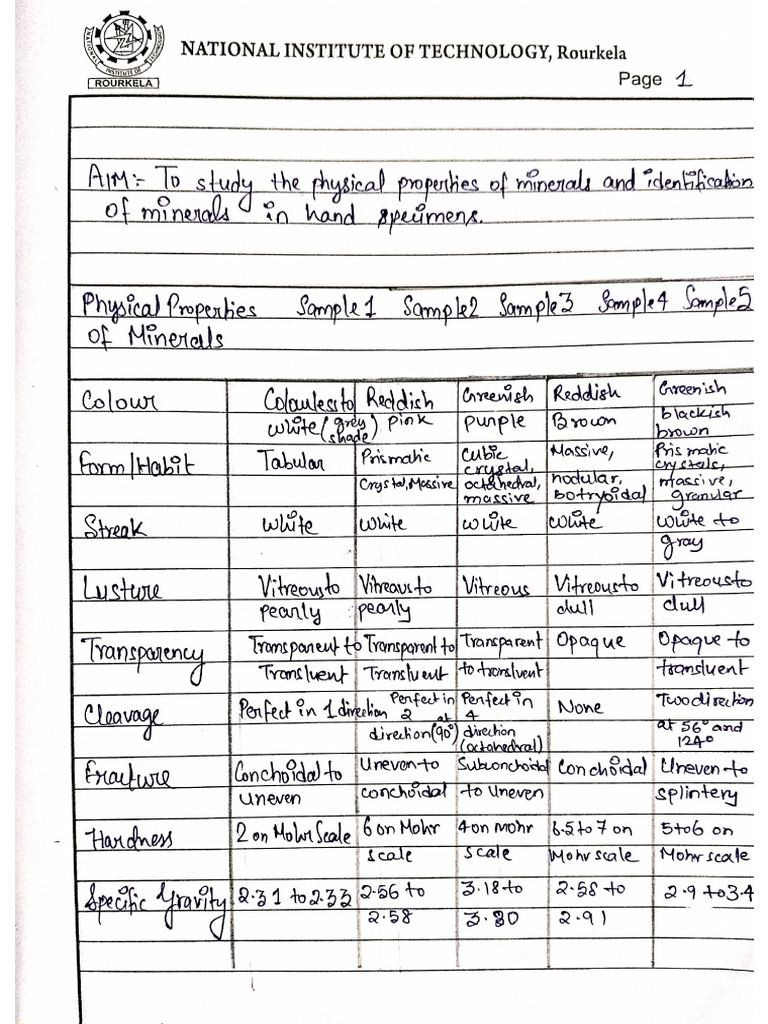 NATIONAL INSTITUTE OF TECHNOLOGY, Rourkela
NATIONAL INSTITUTE OF TECHNOLOGY
ROURKELA
Page 1
AIM:- To study the physical properties of minerals and identification
of minerals in hand specimens.
Physical Properties Sample1 Sample2 Sample3 Sample4 Sample5
of Minerals
Colour Colourless to Reddish Greenish Reddish Greenish
white (grey shade) pink purple Brown blackish brown
Form/Habit Tabular Prismatic Cubic crystal, Massive, Prismatic crystals,
Crystal, Massive octahedral, massive nodular, botryoidal massive, granular
Streak White White White White White to
gray
Lusture Vitreous to Vitreous to Vitreous Vitreous to Vitreous to
pearly pearly dull dull
Transparency Transparent to Transparent to Transparent Opaque Opaque to
Transluent Transluent to transluent transluent
Cleavage Perfect in 1 direction Perfect in 2 Perfect in 4 None Two direction
at direction (90°) direction (octohedral) at 56° and 124°
Fracture Conchoidal to Uneven to Subconchoidal Conchoidal Uneven to
uneven conchoidal to Uneven splintery
Hardness 2 on Mohr Scale 6 on Mohr 4 on mohr 6.5 to 7 on 5 to 6 on
scale scale Mohr scale Mohr scale
Specific Gravity 2.31 to 2.33 2.56 to 3.18 to 2.58 to 2.9 to 3.4
2.58 3.20 2.91